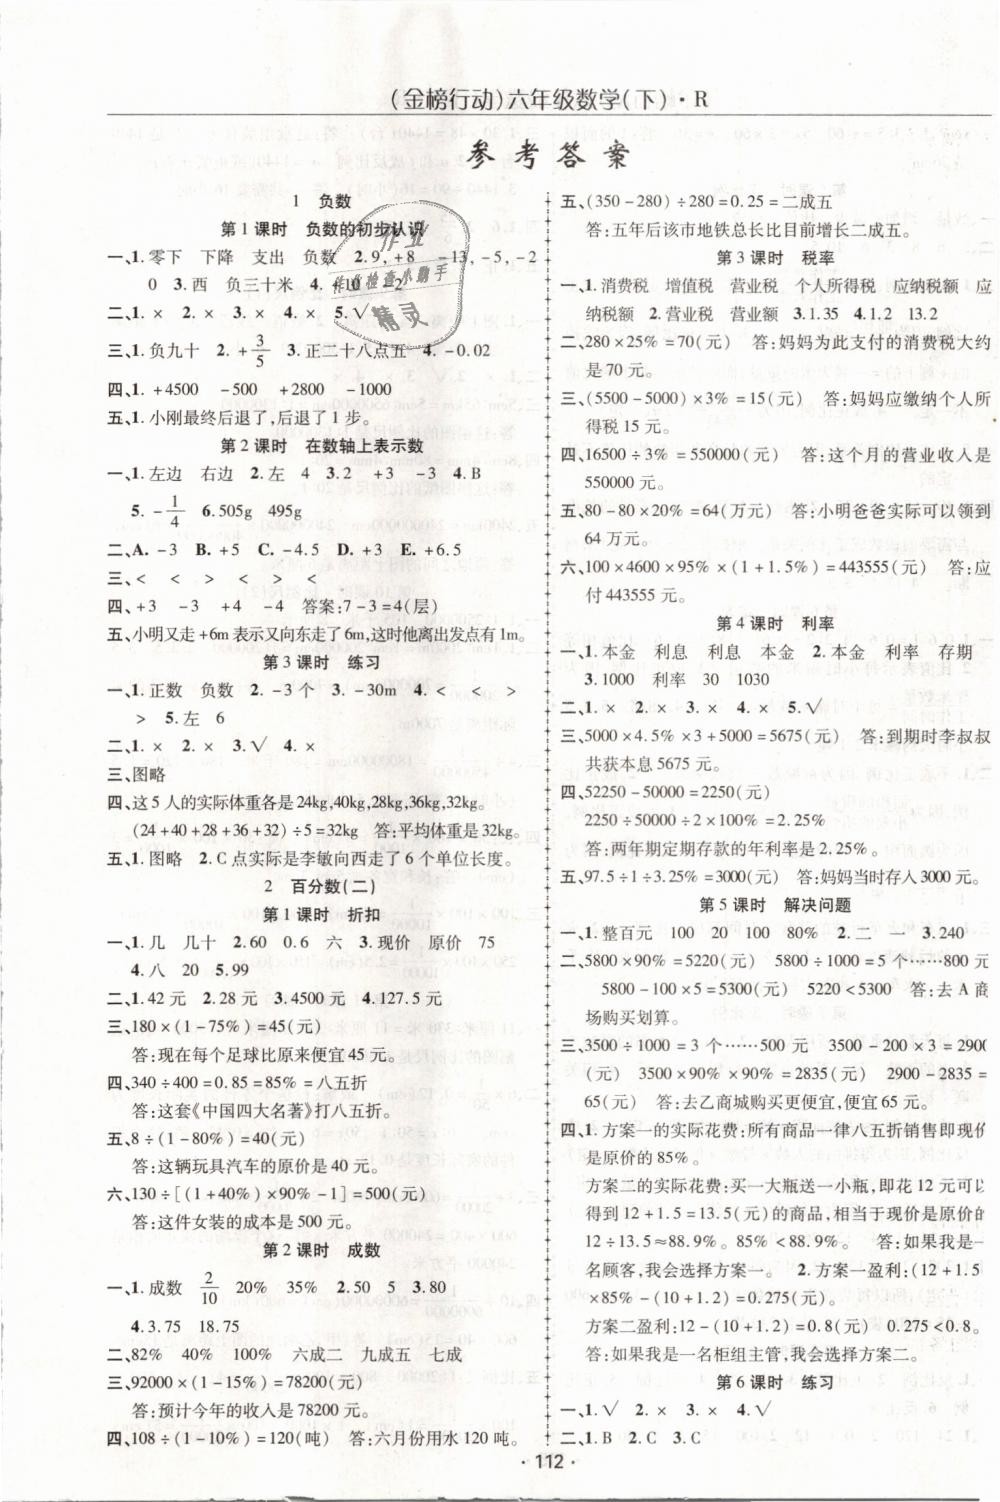 (金榜行动)六年级数学(下)·R
参考答案
1 负数
第1课时 负数的初步认识
一、1.零下 下降 支出 负数 2.9,+8 -13,-5,-2
0 3.西 负三十米 4.+10 -2
二、1.× 2.× 3.× 4.× 5.√
三、1.负九十 2.+3/5 3.正二十八点五 4.-0.02
四、1.+4500 -500 +2800 -1000
五、1.小刚最终后退了,后退1步。
第2课时 在数轴上表示数
一、1.左边 右边 2.左 4 3.2 +3 -3 4.B
5.-1/4 6.505g 495g
二、A.-3 B.+5 C.-4.5 D.+3 E.+6.5
三、< < > > < > <
四、+3 -3 +4 -4 答案:7-3=4(层)
五、小明又走+6m表示又向东走了6m,这时他离出发点有1m。
第3课时 练习
一、1.正数 负数 2.-3个 3.-30m 4.< < < >
> > 5.左 6
二、1.× 2.× 3.√ 4.×
三、图略
四、这5人的实际体重各是24kg,40kg,28kg,36kg,32kg。
(24+40+28+36+32)÷5=32kg 答:平均体重是32kg。
五、1.图略 2.C点实际是李敏向西走了6个单位长度。
2 百分数(二)
第1课时 折扣
一、1.几 几十 2.60 0.6 六 3.现价 原价 75
4.八 20 5.99
二、1.42元 2.28元 3.4500元 4.127.5元
三、180×(1-75%)=45(元)
答:现在每个足球比原来便宜45元。
四、340÷400=0.85=85%=八五折
答:这套《中国四大名著》打八五折。
五、8÷(1-80%)=40(元)
答:这辆玩具汽车的原价是40元。
六、130÷[(1+40%)×90%-1]=500(元)
答:这件女装的成本是500元。
第2课时 成数
一、1.成数 2/10 20% 35% 2.50 5 3.80
4.3.75 18.75
二、82% 40% 100% 六成二 九成五 七成
三、92000×(1-15%)=78200(元)
答:预计今年的收入是78200元。
四、108÷(1-10%)=120(吨) 答:六月份用水120吨。
五、(350-280)÷280=0.25=二成五
答:五年后该市地铁总长比目前增长二成五。
第3课时 税率
一、1.消费税 增值税 营业税 个人所得税 应纳税额 应
纳税额 2.营业税 营业额 3.1.35 4.1.2 13.2
二、280×25%=70(元) 答:妈妈为此支付的消费税大约
是70元。
三、(5500-5000)×3%=15(元) 答:妈妈应缴纳个人所
得税15元。
四、16500÷3%=550000(元) 答:这个月的营业收入是
550000元。
五、80-80×20%=64(万元) 答:小明爸爸实际可以领到
64万元。
六、100×4600×95%×(1+1.5%)=443555(元) 答:应
付443555元。
第4课时 利率
一、1.本金 利息 利息 本金 2.本金 利率 存期
3.1000 利率 30 1030
二、1.√ 2.× 3.× 4.× 5.√
三、5000×4.5%×3+5000=5675(元) 答:到期时李叔叔
共获本息5675元。
四、52250-50000=2250(元)
2250÷50000÷2×100%=2.25%
答:两年期定期存款的年利率是2.25%。
五、97.5÷1÷3.25%=3000(元) 答:妈妈当时存入3000元。
第5课时 解决问题
一、1.整百元 100 20 100 80% 2.二 一 3.240
二、5800×90%=5220(元) 5800÷1000=5个……800元
5800-100×5=5300(元) 5220<5300 答:去A商
场购买划算。
三、3500÷1000=3个……500元 3500-200×3=2900
(元) 3500×90%×90%=2835(元) 2900-2835=
65(元) 答:去乙商城购买更便宜,便宜65元。
四、1.方案一的实际花费:所有商品一律八五折销售即现价
是原价的85%。
方案二的实际花费:买一大瓶送一小瓶,即花12元可以
得到12+1.5=13.5(元)的商品,相当于现价是原价的
12÷13.5≈88.9%。85%<88.9%。 答:如果我是一
名顾客,我会选择方案一。 2.方案一盈利:(12+1.5)
×85%-(10+1.2)=0.275(元)。
方案二盈利:12-(10+1.2)=0.8(元) 0.275<0.8。
答:如果我是一名柜组主管,我会选择方案二。
第6课时 练习
一、1.√ 2.× 3.× 4.√
二、1.B 2.C 3.C
·112·
作业
作业检查小助手
精灵